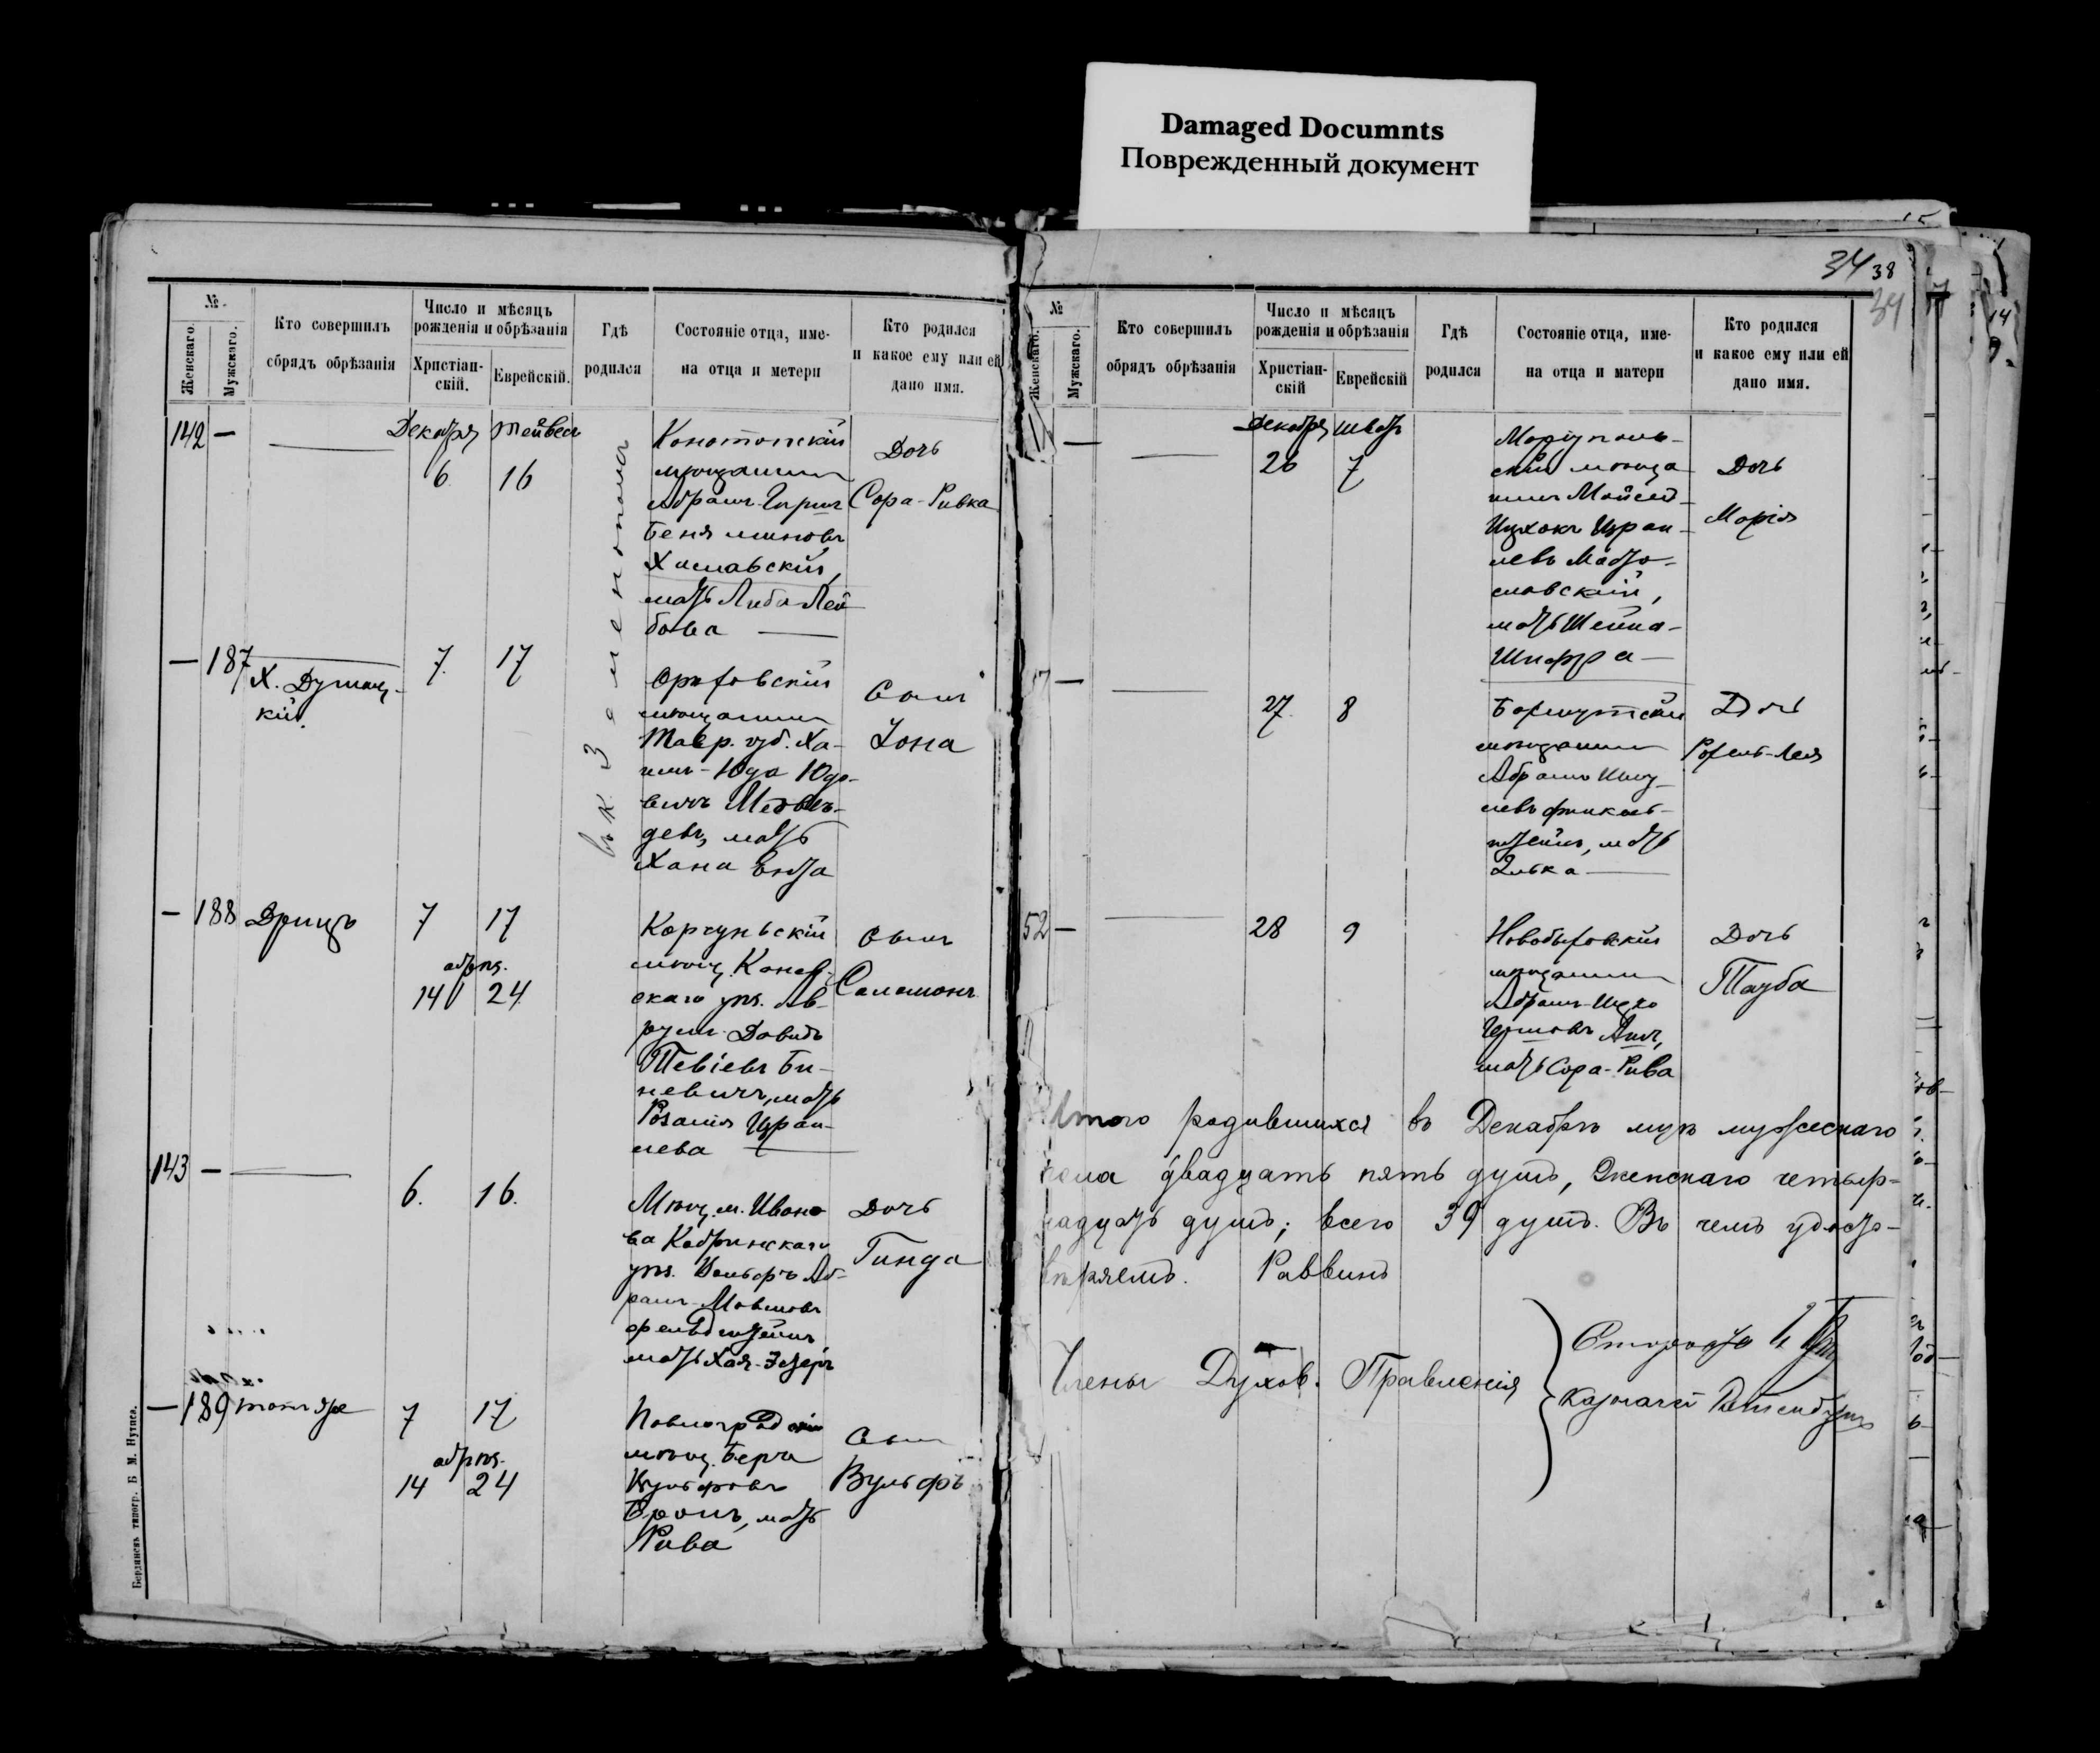 Damaged Documnts
Поврежденный документ
№.
Женскаго.
Мужскаго.
Кто совершилъ
обрядъ обрѣзанія
Число и мѣсяцъ
рожденія и обрѣзанія
Христіан-
скій.
Еврейскій.
Гдѣ
родился
Состояніе отца, име-
на отца и метери
Кто родился
и какое ему или ей
дано имя.
142 —
Декабря Тейвесъ
6 16
Конотопскій
мѣщанинъ
Абрамъ-Гиршъ
Беняминовъ
Хиславскій,
мать Либа Лей-
бова
Дочь
Сора-Ривка
— 187
7. 17
Орѣховскій
мѣщанинъ
Тавр. губ. Ха-
имъ-Юда Юдо-
вичъ Медвѣ-
девъ, мать
Хана
Сынъ
Іона
— 188
7 17
обрѣз.
14 24
Корсуньскій
мѣщ. Канев-
скаго уѣз. Ав-
румъ-Довидъ
Тевіевъ Би-
невичъ, мать
Розалія Израи-
лева
Сынъ
Саламонъ
143 —
6. 16.
Мѣщ. м. Ивано-
ва Кобринскаго
уѣз. Вольфъ Аб-
рамъ Мовшовъ
Фельдштейнъ,
мать Хая-Эстеръ
Дочь
Гинда
— 189
7 17
обрѣз.
14 24
Павлоградскій
мѣщ. Берка
Вульфовъ
мать
Рива
Сынъ
Вульфъ
Бердянскъ типогр. Б М. Нутиса.
34 38
34
№
Женскаго.
Мужскаго.
Кто совершилъ
обрядъ обрѣзанія
Число и мѣсяцъ
рожденія и обрѣзанія
Христіан-
скій
Еврейскій
Гдѣ
родился
Состояніе отца, име-
на отца и матери
Кто родился
и какое ему или ей
дано имя.
Декабря Шватъ
26 7
Маріуполь-
скій мѣща-
нинъ Мойсей-
Ицхокъ Израи-
левъ
славскій,
мать Шейна-
Шифра
Дочь
Марія
27. 8
мѣщанинъ
Абрамъ
левъ Финкель-
штейнъ, мать
Элька
Дочь
52 —
28 9
мѣщанинъ
Абрамъ-
мать Сора-Рива
Дочь
Тауба
Итого родившихся въ Декабрѣ мѣс мужескаго
пола двадцать пять душъ, женскаго четыр-
надцать душъ; всего 39 душъ. Въ чемъ удосто-
вѣряемъ. Раввинъ
Члены Духов. Правленія
Староста
Казначей